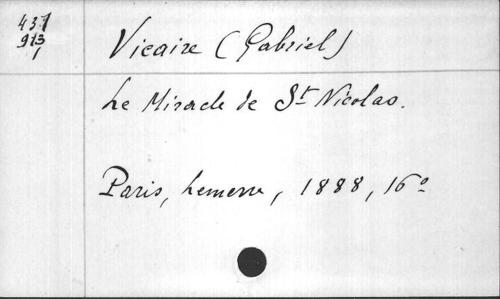 437
913
1
Vicaire (Gabriel)
Le Miracle de St Nicolas.
Paris, Lemerre, 1888, 16°